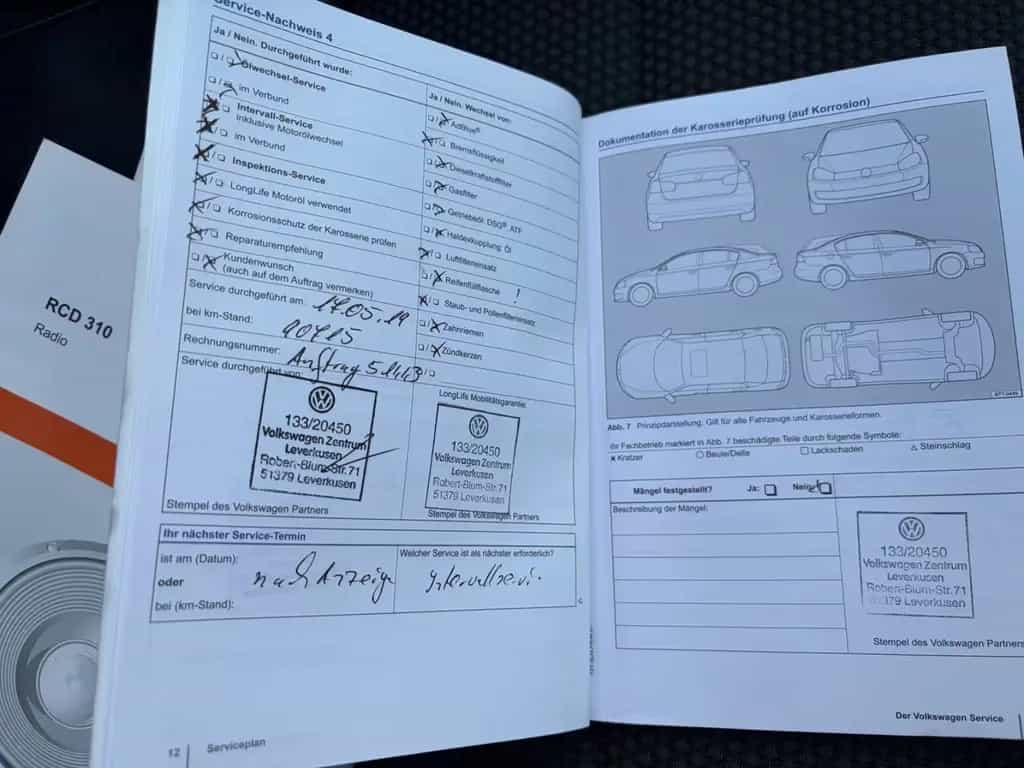 RCD 310
Radio
Service-Nachweis 4
Ja / Nein. Durchgeführt wurde:
Ölwechsel-Service
im Verbund
Intervall-Service
inklusive Motorölwechsel
im Verbund
Inspektions-Service
LongLife Motoröl verwendet
Korrosionsschutz der Karosserie prüfen
Reparaturempfehlung
Kundenwunsch
(auch auf dem Auftrag vermerken)
Service durchgeführt am:
bei km-Stand:
Rechnungsnummer: Auftrag
Service durchgeführt von:
133/20450
Volkswagen Zentrum
Leverkusen
Robert-Blum-Str. 71
51379 Leverkusen
Stempel des Volkswagen Partners
Ja / Nein. Wechsel von:
AdBlue®
Bremsflüssigkeit
Dieselkraftstofffilter
Gasfilter
Getriebeöl: DSG® ATF
Haldexkupplung: Öl
Luftfiltereinsatz
Reifenfüllflasche !
Staub- und Pollenfiltereinsatz
Zahnriemen
Zündkerzen
LongLife Mobilitätsgarantie:
133/20450
Volkswagen Zentrum
Leverkusen
Robert-Blum-Str. 71
51379 Leverkusen
Stempel des Volkswagen Partners
Ihr nächster Service-Termin
ist am (Datum):
oder
bei (km-Stand):
nach Anzeige
Welcher Service ist als nächster erforderlich?
12 Serviceplan
Dokumentation der Karosserieprüfung (auf Korrosion)
Abb. 7 Prinzipdarstellung. Gilt für alle Fahrzeuge und Karosserieformen.
Fachbetrieb markiert in Abb. 7 beschädigte Teile durch folgende Symbole:
Kratzer Beule/Delle Lackschaden Steinschlag
Mängel festgestellt? Ja: Nein:
Beschreibung der Mängel:
133/20450
Volkswagen Zentrum
Leverkusen
Robert-Blum-Str. 71
51379 Leverkusen
Stempel des Volkswagen Partners
Der Volkswagen Service